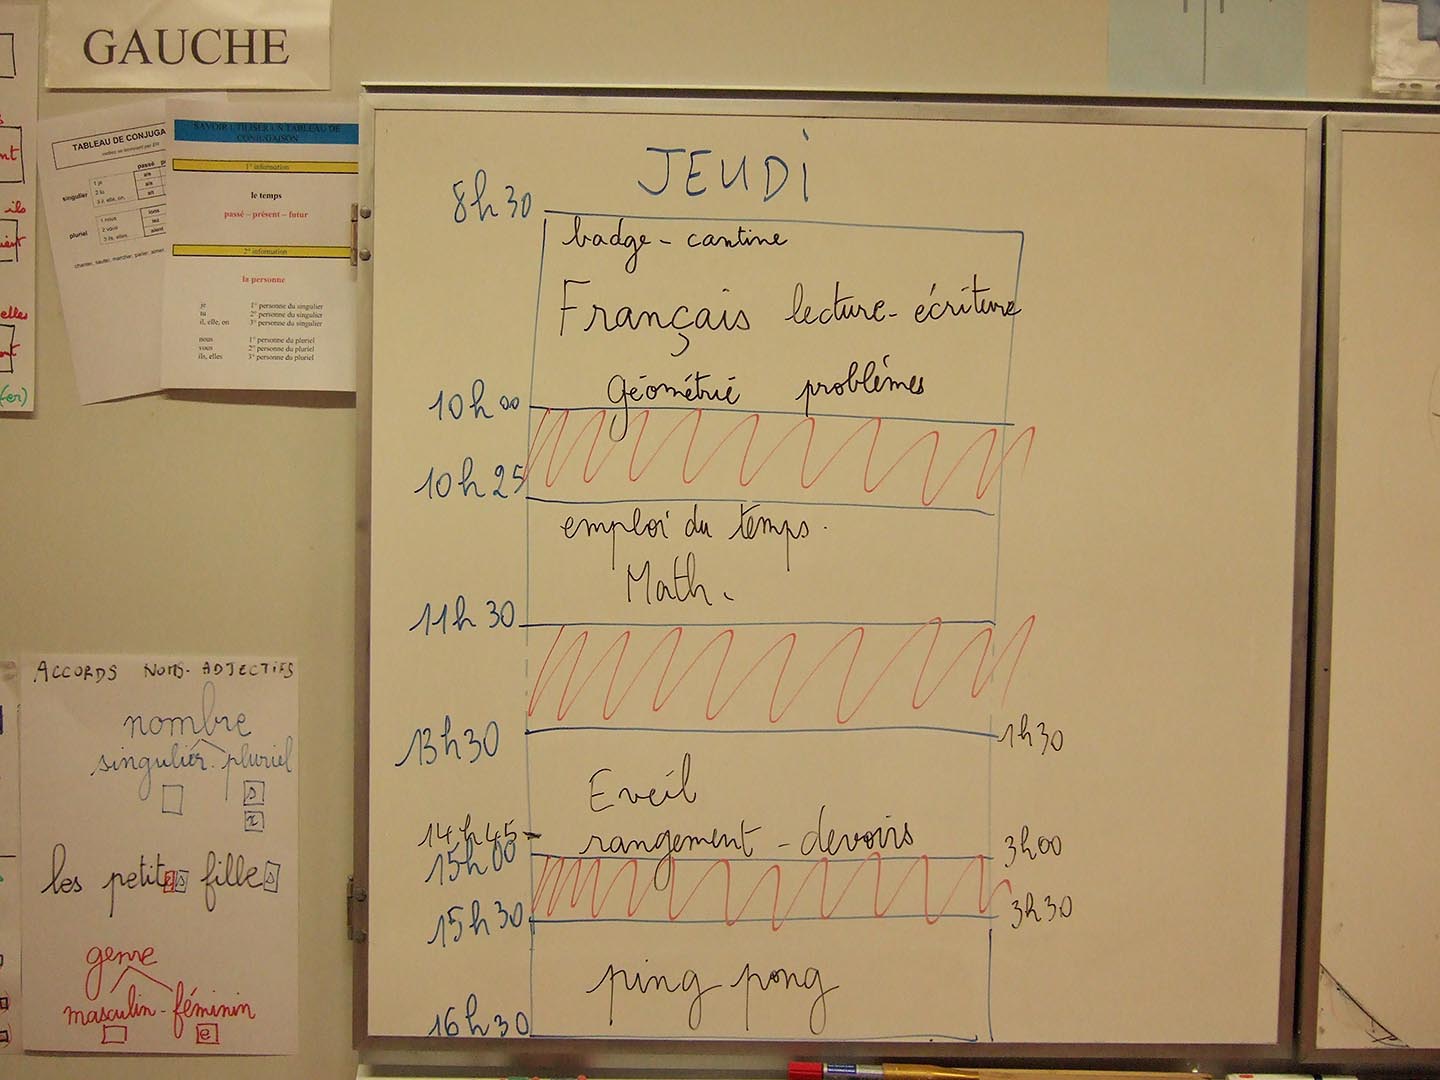 GAUCHE
TABLEAU DE CONJUGA
passé
singulier
1 je
ais
2 tu
ais
3 il, elle, on,
ait
pluriel
1 nous
ions
2 vous
iez
3 ils, elles,
aient
chanter, sauter, marcher, parler, aimer
SAVOIR UTILISER UN TABLEAU DE
CONJUGAISON
1° information
le temps
passé – présent – futur
2° information
la personne
je 1° personne du singulier
tu 2° personne du singulier
il, elle, on 3° personne du singulier
nous 1° personne du pluriel
vous 2° personne du pluriel
ils, elles 3° personne du pluriel
ils
elles
JEUDi
8h30
badge - cantine
Français lecture - écriture
géométrie problèmes
10h00
10h25
emploi du temps.
Math.
11h30
13h30 1h30
Eveil
14h45 rangement - devoirs
15h00 3h00
15h30 3h30
ping pong
16h30
ACCORDS NOMS-ADJECTIFS
nombre
singulier - pluriel
s
x
les petites filles
genre
masculin - féminin
e